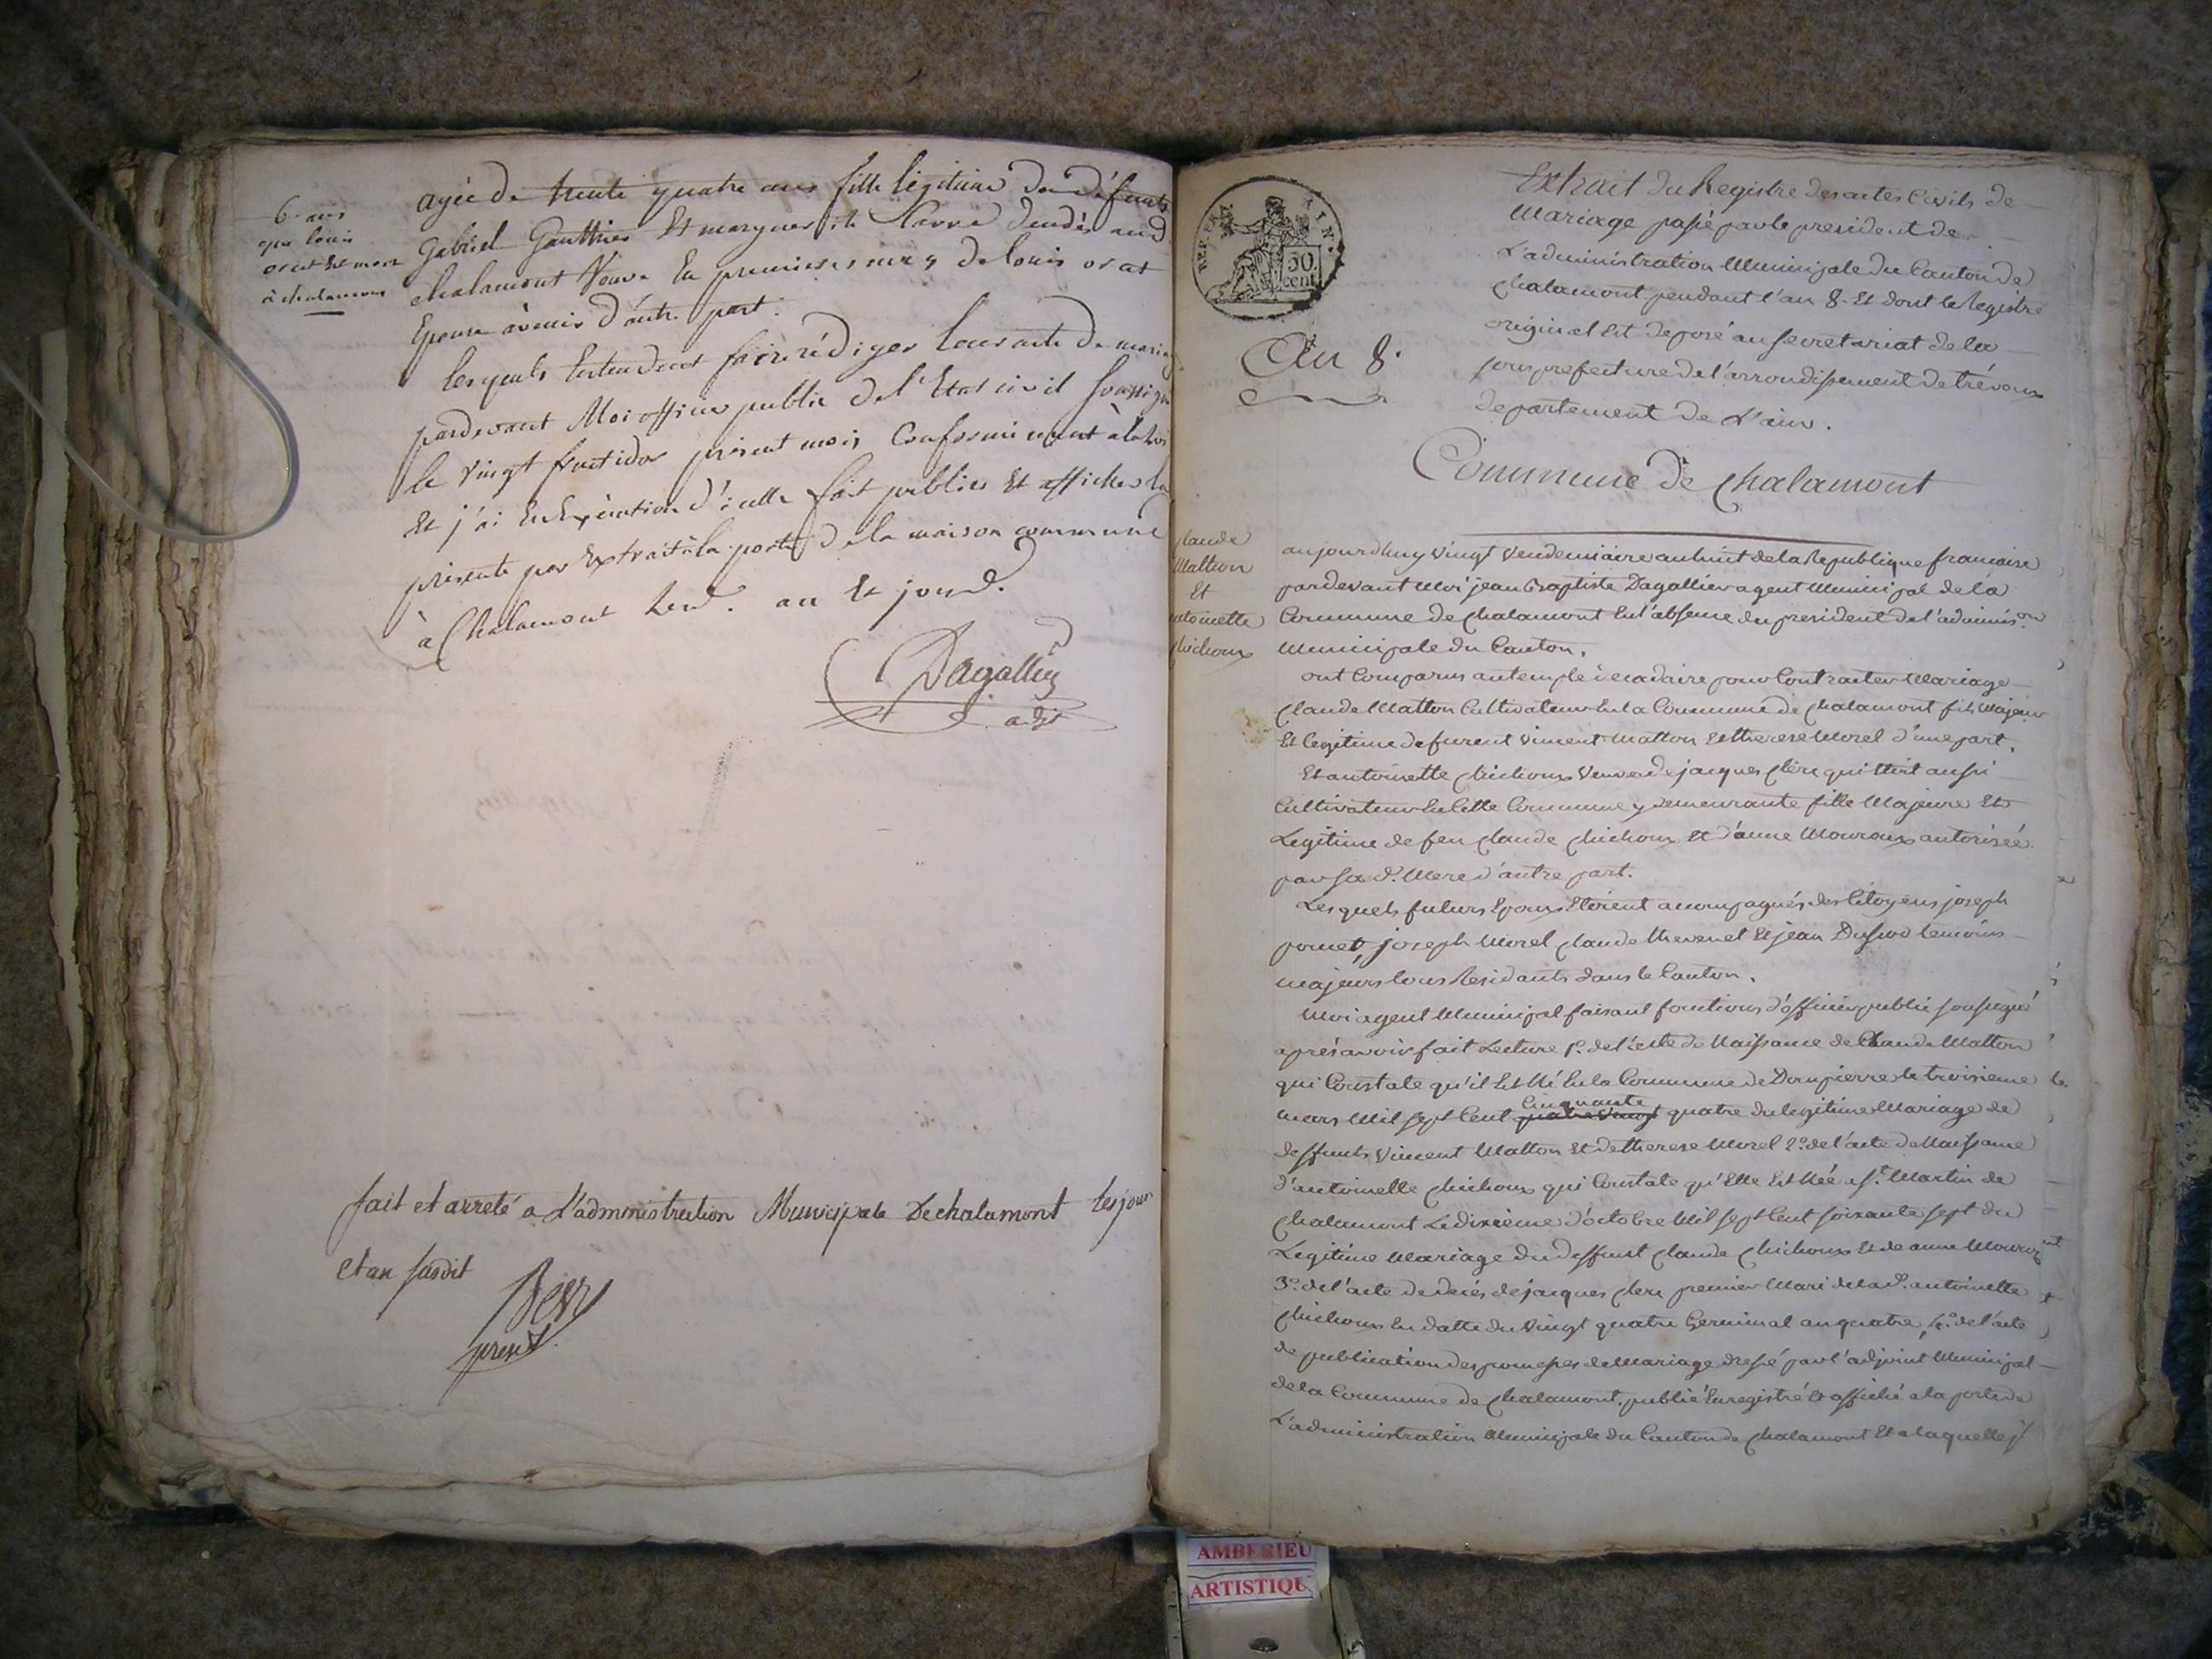 6 ans
que louis
orat est mort
à chalamont
agée de trente quatre ans fille légitime de défunts
Gabriel Gauthier Et marguerite
chalamont Veuve En premieres de louis orat
Epouse àvenir d'autre part.
lesquels Entendent faire rédiger leur acte de mariage
pardevant Moi officier public de l'Etat civil soussigné
le vingt fructidor présent mois Conformément à la loi
Et j'ai En Exécution d'icelle fait publier Et afficher la
présente par Extrait à la porte de la maison commune
à Chalamont Lesd. an Et jour.
Dagallier
adjt
fait et arreté a L'administration Municipale De chalamont les jour
et an susdit
presdt
REP. FRA. AIN.
50
cent
An 8.
Extrait du Registre des actes Civils de
Mariage passé par le president de
L'administration Municipale du Canton de
Chalamont pendant l'an 8. Et dont le Registre
original Est deposé au secretariat de la
sousprefecture de l'arrondissement de trévoux
departement de L'ain.
Commune de Chalamont
Claude
Matton
Et
antoinette
Chichoux
aujourdhuy Vingt Vendemiaire an huit de la Republique francaise
pardevant Moi jean Baptiste Dagallier agent Municipal de la
Commune de Chalamont En l'absence du president de l'adminis.on
Municipale du Canton.
ont Comparus au temple décadaire pour Contracter Mariage
Claude Matton Cultivateur En la Commune de Chalamont fils Majeur
Et legitime de furent Vincent Matton Et therese Morel d'une part.
Et antoinette Chichoux Veuve de jacques Clerc qui Etoit aussi
Cultivateur En Cette Commune y demeurante fille Majeure Et
Legitime de feu Claude Chichoux Et d'anne Mouroux autorisée
par sa d. Mere d'autre part.
Lesquels futurs Epoux Etoient accompagnés des Citoyens joseph
pomet, joseph Morel Claude thevenet Et jean temoins
majeurs tous Residants dans le Canton.
Moi agent Municipal faisant fonctions d'officier public soussigné
après avoir fait Lecture 1o. de l'acte de Naissance de Claude Matton
qui Constate qu'il Est Né En la Commune de Dompierre le troisieme
Cinquante
mars Mil sept Cent quatre Vingt quatre du legitime Mariage de
deffunts Vincent Matton Et de therese Morel 2o. de l'acte de Naissance
d'antoinette Chichoux qui Constate qu'Elle Est Née a St. Martin de
Chalamont Le dixieme d'octobre Mil sept Cent soixante sept du
Legitime Mariage du deffunt Claude Chichoux Et de anne Mouroux
3o. de l'acte de decès de jacques Clerc premier Mari de la d. antoinette
Chichoux En datte du Vingt quatre Germinal an quatre, 4o. de l'acte
de publication des promesses de Mariage dressé par l'adjoint Municipal
de la Commune de Chalamont, publié Enregistré Et affiché a la porte de
L'administration Municipale du Canton de Chalamont Et a laquelle
AMBERIEU
ARTISTIQU